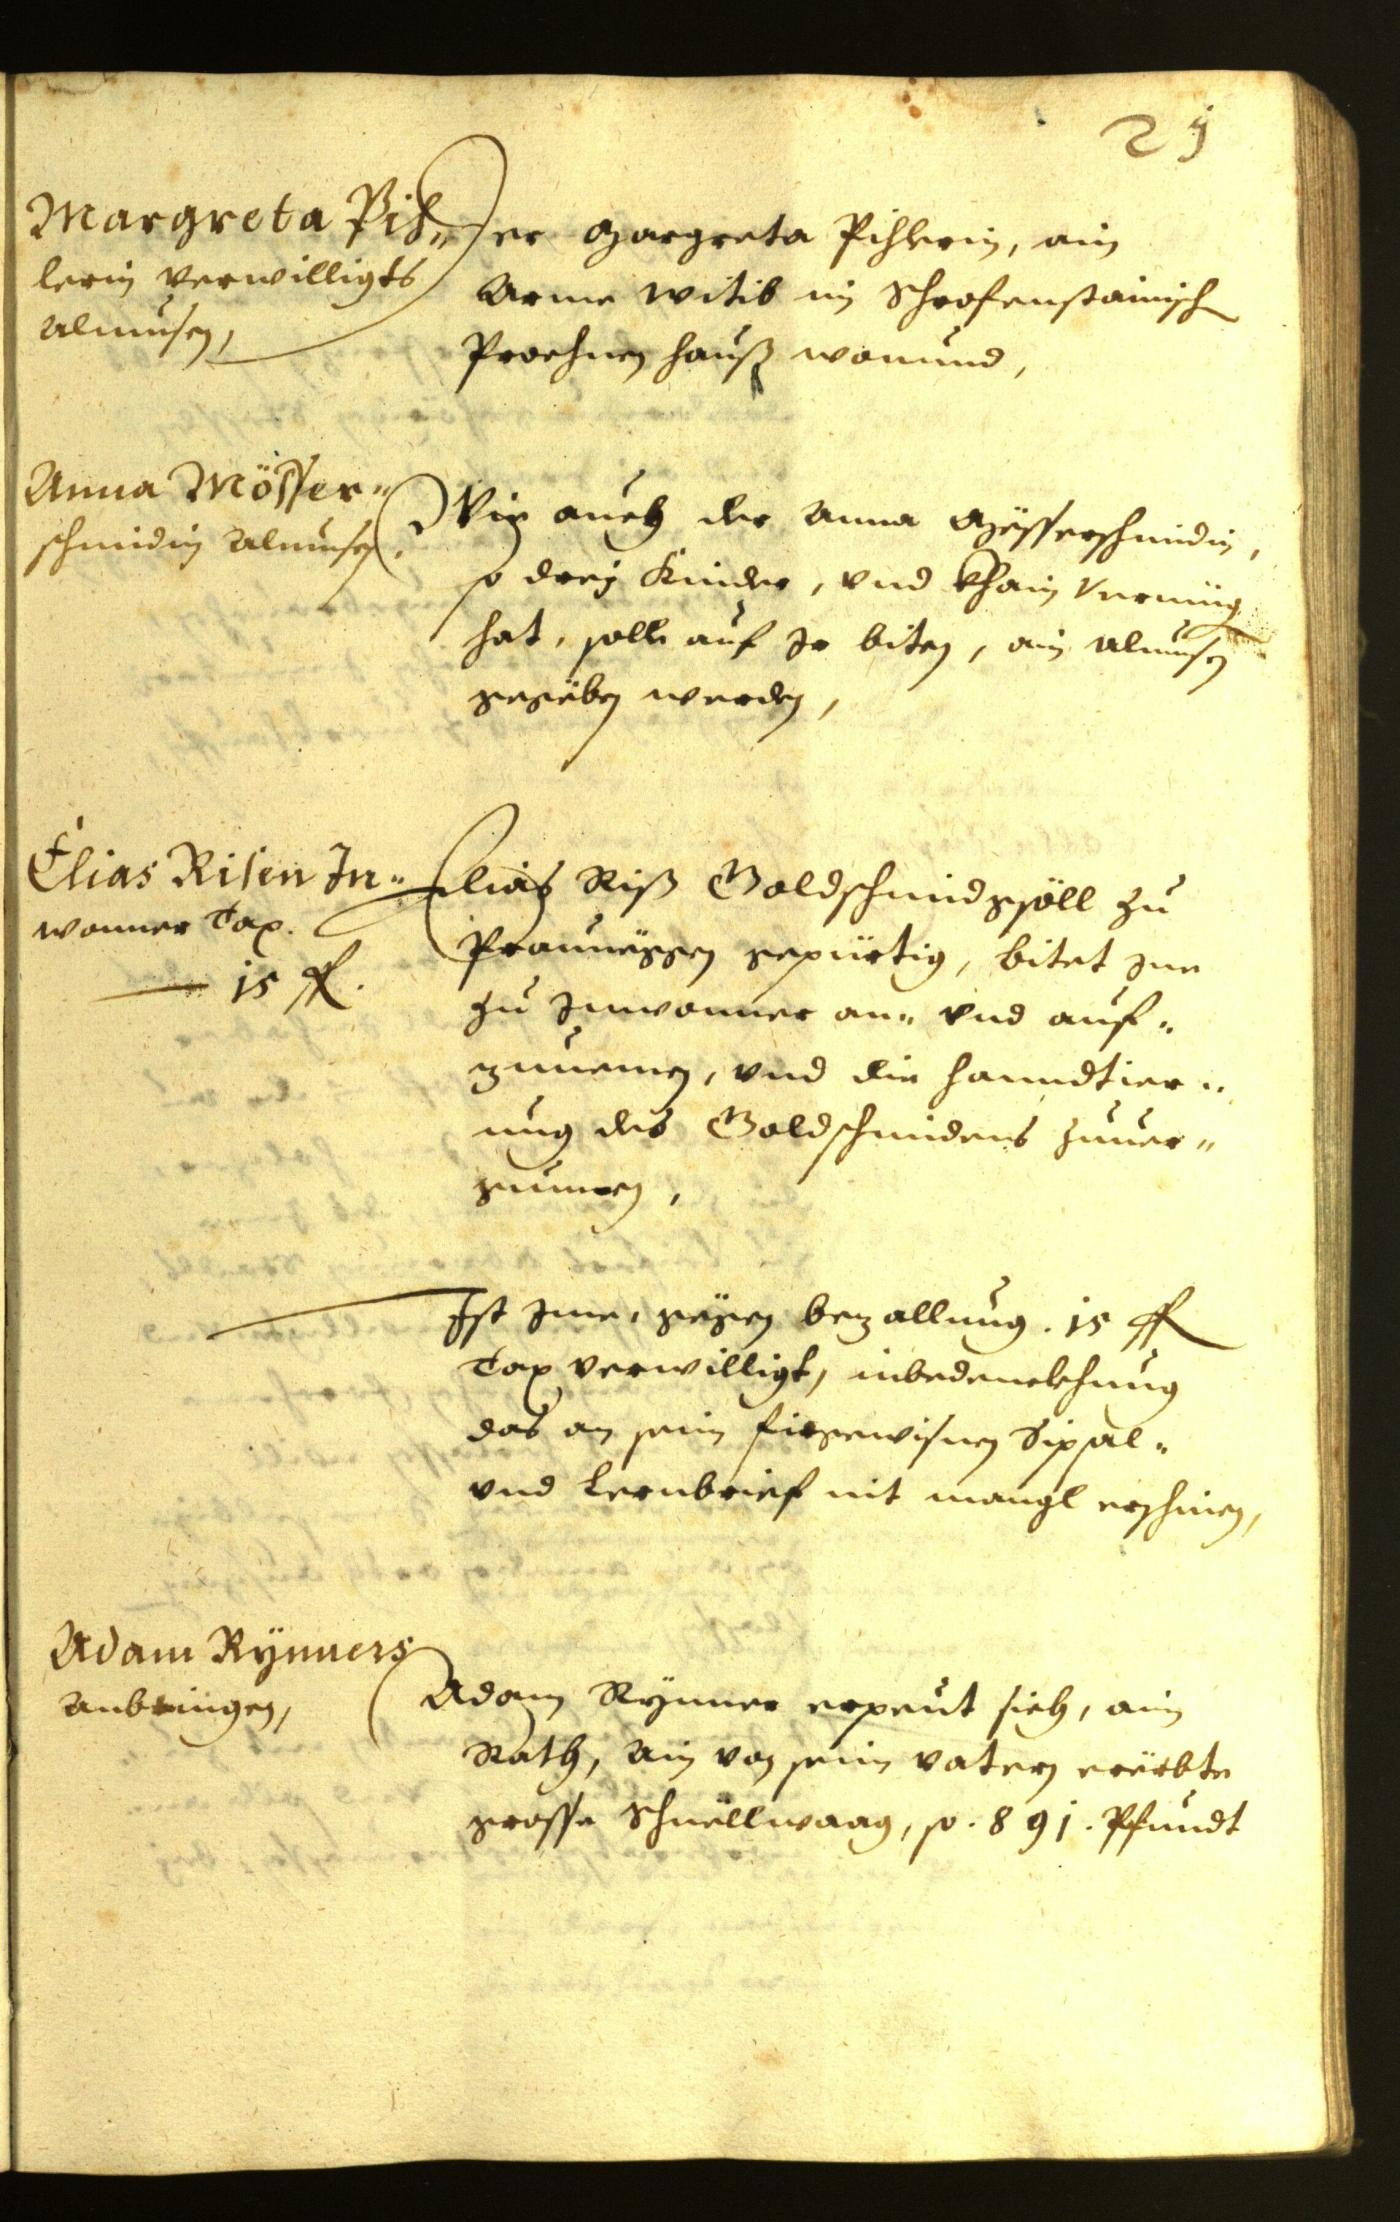 21
Margreta Pich„
lerin verwilligts
Almusen,
Der Margreta Pichlerin, ain
Arme Witib im Schrofenstainisch
Proehnen hauß wonund,
Anna Mösser„
schmidin Almusen,
Wie auch der Anna Mösserschmidin,
so drey Kinder, vnd khain Vermüg
hat, solle auf Jr biten, ain Almusen
gegëben werden,
Elias Risen In„
wonner Tax.
15 fl.
Elias Riß Goldschmidgsöll zu
Prauneggen gepürtig, bitet Jne
zu Jnwonner an„ vnd auf„
zunemen, vnd die hanndtier„
ung des Goldschmidens zuuer„
gunnen,
Ist Jme, gegen bezallung. 15 fl
Tax verwilligt, inbedenckhung
das an sein fürgewisnen Sipsal„
vnd Lernbrief nit mangl erschinen,
Adam Rynners
Anbringen,
Adam Rynner erpeut sich, ain
Rath, Ain von sein vatern ererbte
grosse Schnellwaag, so. 891. Pfundt